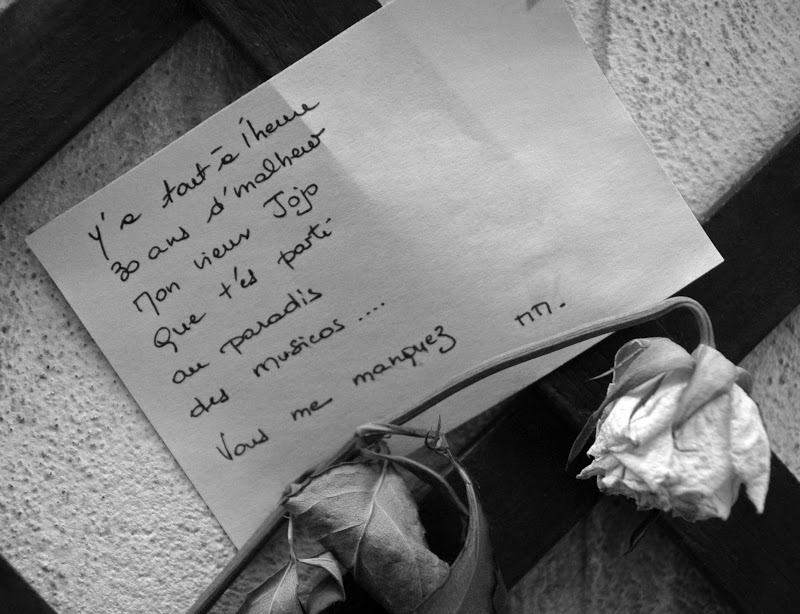 Y'a tout-à l'heure
30 ans d'malheur
Mon vieux Jojo
Que t'es parti
au paradis
des musicos ....
Vous me manquez
MM.